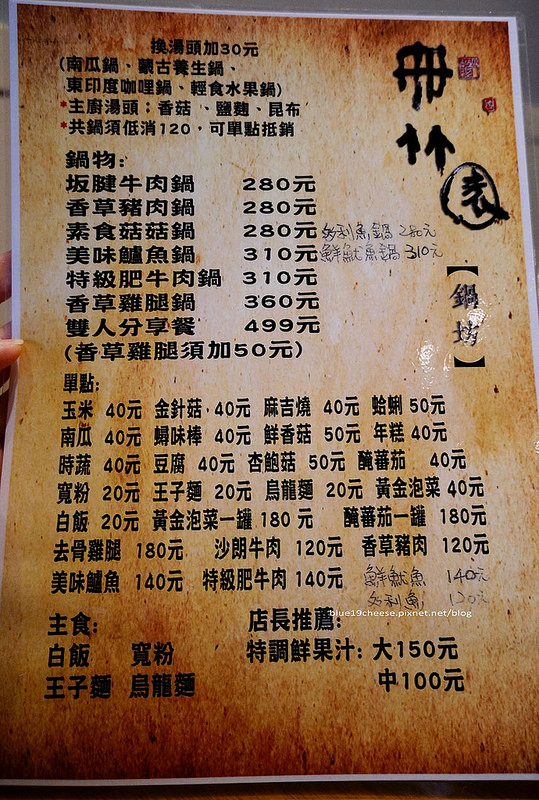 換湯頭加30元
(南瓜鍋、蒙古養生鍋、
東印度咖哩鍋、輕食水果鍋)
*主廚湯頭：香菇、鹽麴、昆布
*共鍋須低消120，可單點抵銷
鍋物:
坂腱牛肉鍋 280元
香草豬肉鍋 280元
素食菇菇鍋 280元 多利魚鍋 280元
美味鱸魚鍋 310元 鮮魷魚鍋 310元
特級肥牛肉鍋 310元
香草雞腿鍋 360元
雙人分享餐 499元
(香草雞腿須加50元)
【鍋坊】
單點:
玉米 40元 金針菇 40元 麻吉燒 40元 蛤蜊 50元
南瓜 40元 蟳味棒 40元 鮮香菇 50元 年糕 40元
時蔬 40元 豆腐 40元 杏鮑菇 50元 醃蕃茄 40元
寬粉 20元 王子麵 20元 烏龍麵 20元 黃金泡菜 40元
白飯 20元 黃金泡菜一罐 180元 醃蕃茄一罐 180元
去骨雞腿 180元 沙朗牛肉 120元 香草豬肉 120元
美味鱸魚 140元 特級肥牛肉 140元 鮮魷魚 140元
多利魚 120元
blue19cheese.pixnet.net/blog
主食:
白飯 寬粉
王子麵 烏龍麵
店長推薦:
特調鮮果汁: 大150元
中100元